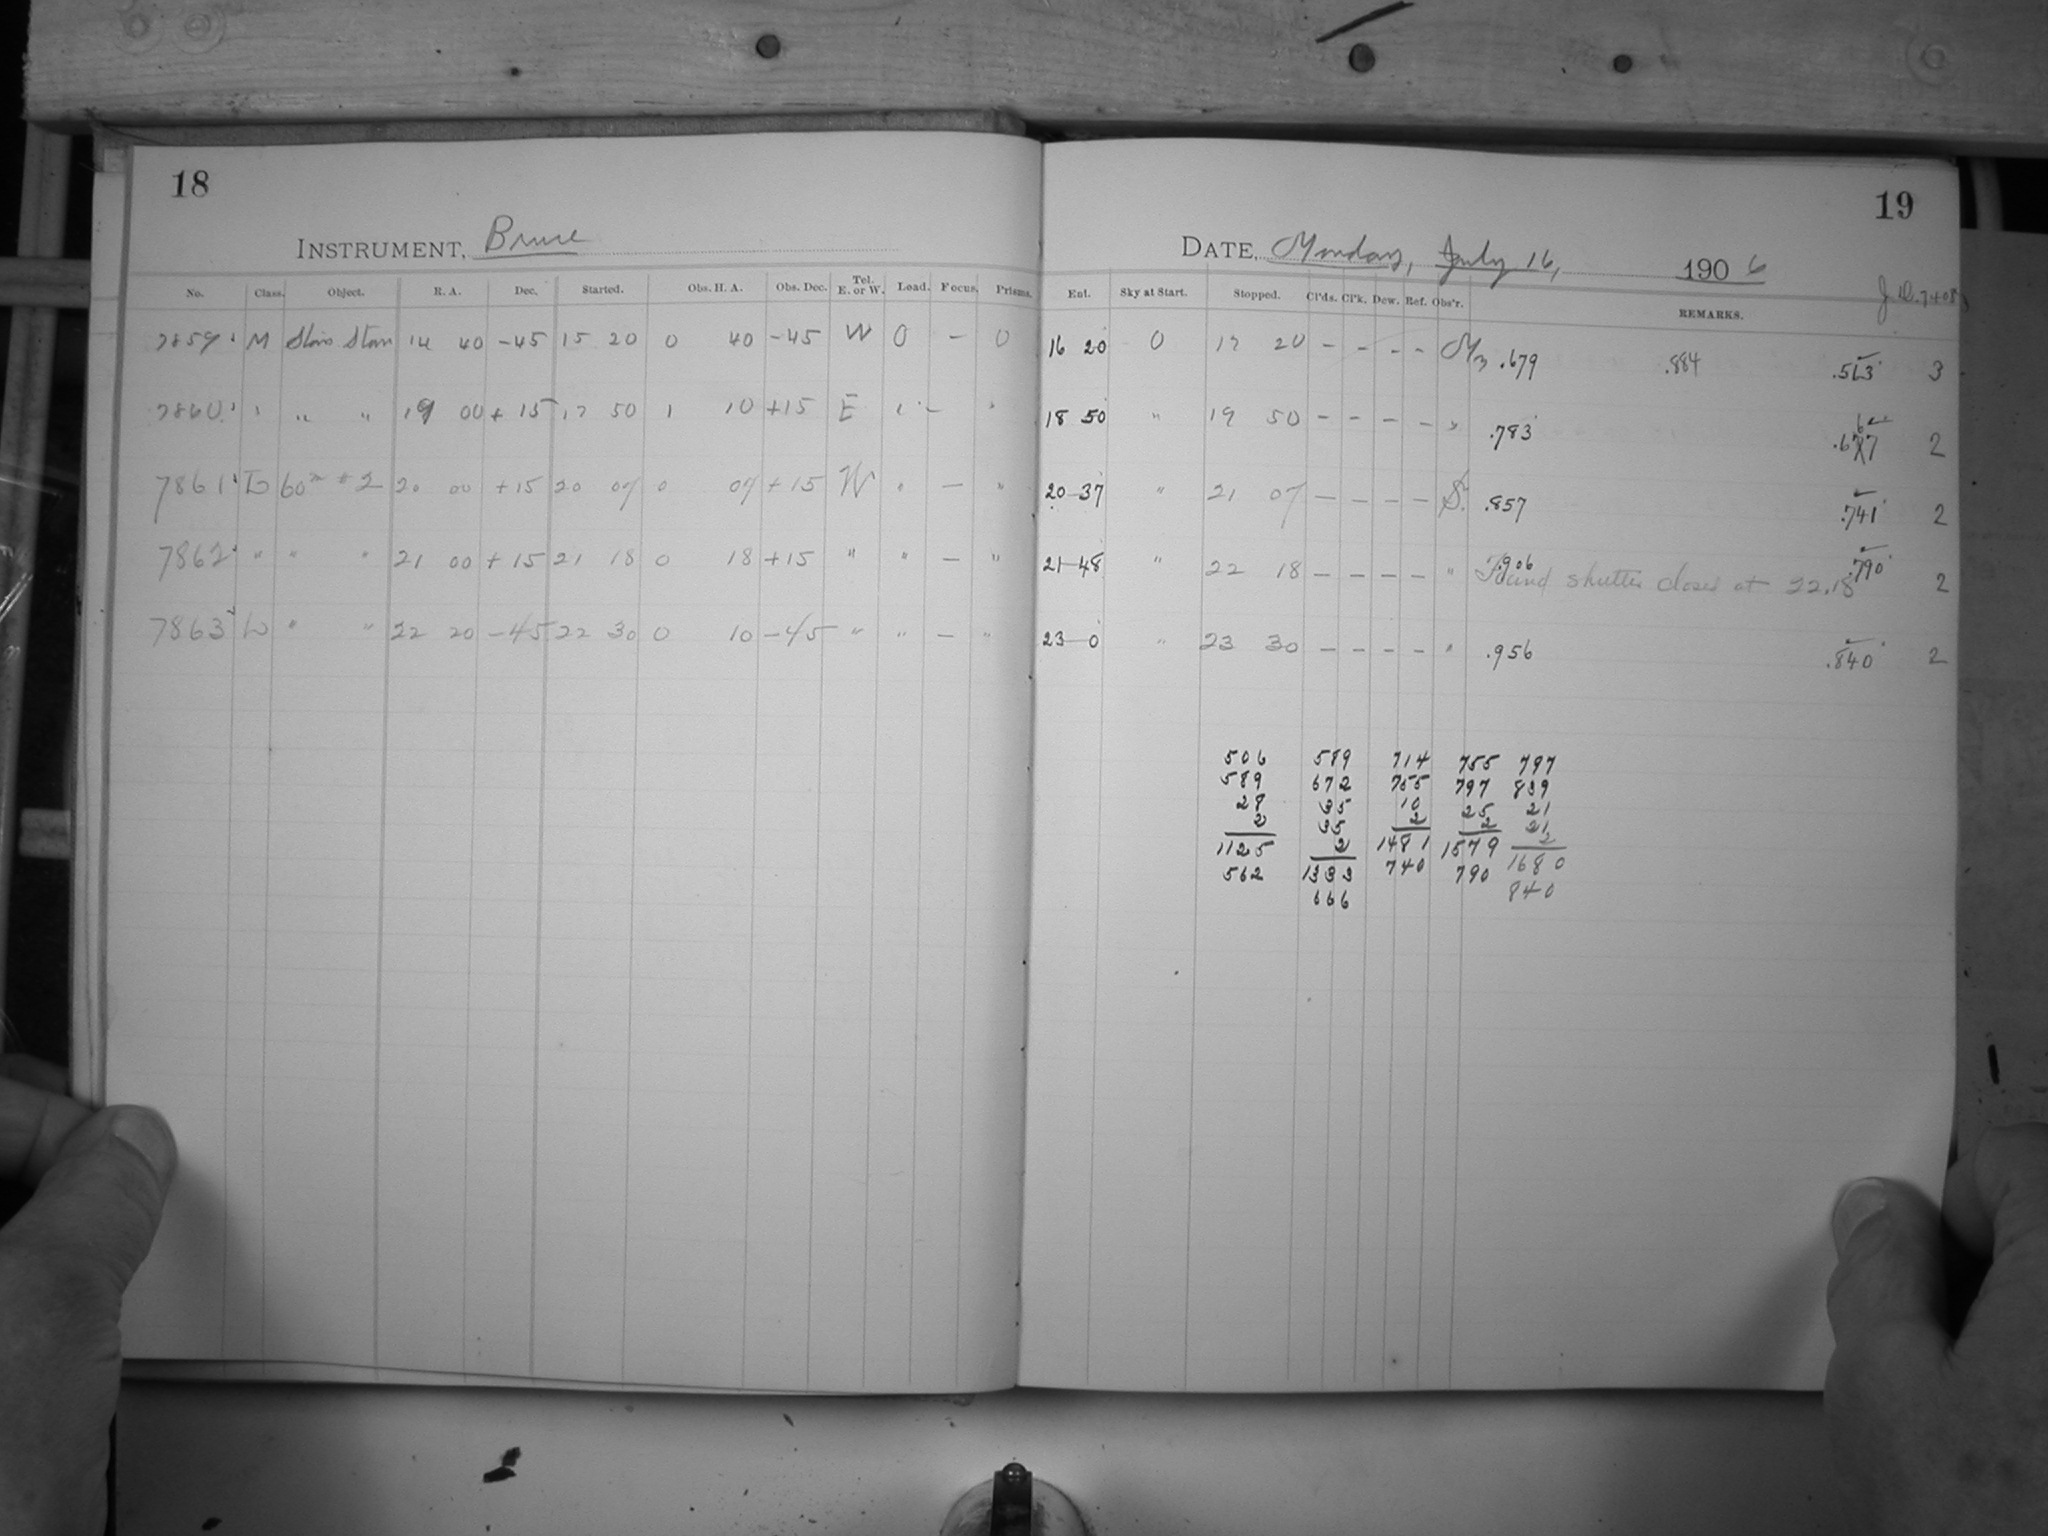 18
INSTRUMENT, Bruce
No. Class. Object. R. A. Dec. Started. Obs. H. A. Obs. Dec. Tel. E. or W. Load. Focus. Prisms.
7859 M 14 40 -45 15 20 0 40 -45 W 0 - 0
7860 " " " 19 00 + 15 17 50 1 10 +15 E -
7861 60m #2 20 00 +15 20 07 0 07 +15 W " - "
7862 " " " 21 00 + 15 21 18 0 18 +15 " " - "
7863 " " 22 20 -45 22 30 0 10 -45 " " - "
19
DATE, Monday, July 16, 1906
Ent. Sky at Start. Stopped. Cl'ds. Cl'k. Dew. Ref. Obs'r. REMARKS.
16 20 0 17 20 - - - - M .679 .884 3
18 50 " 19 50 - - - - " .783 2
20-37 " 21 07 - - - - S. .857 .741 2
21-48 " 22 18 - - - - " .906 .790
Found shutter closed at 22.18 2
23-0 " 23 30 - - - - " .956 .840 2
506 589 714 755 797
589 672 755 797 839
28 35 10 25 21
2 35 2 2 21
1125 2 1481 1579 2
562 1333 740 790 1680
666 840